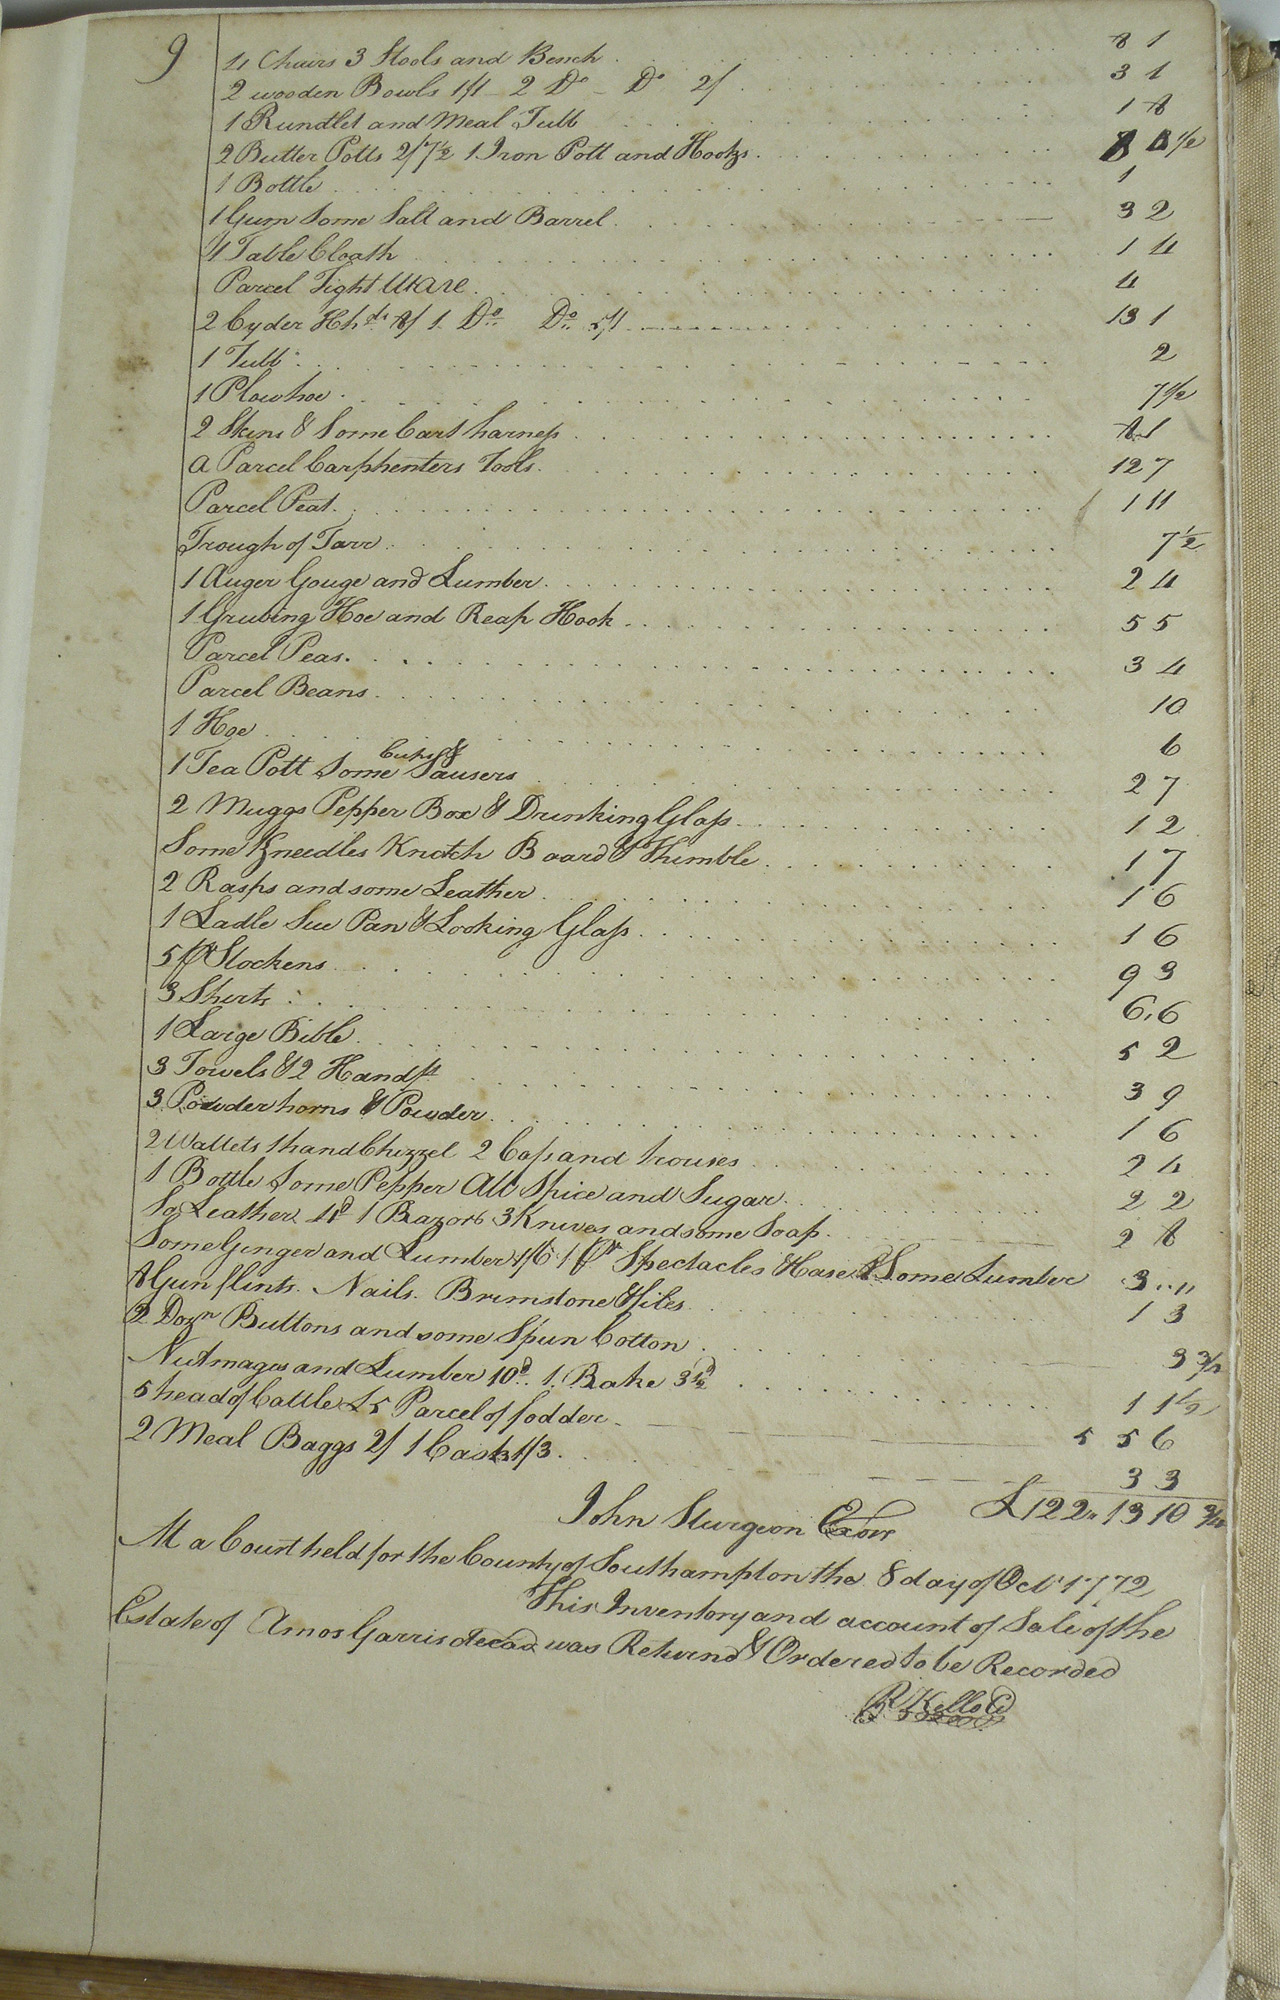 9
4 Chairs 3 Stools and Bench 8 1
2 wooden Bowls 1/1 - 2 Do - Do 2/ 3 1
1 Rundlet and Meal Tubb 1 8
2 Butter Potts 2/7½ 1 Iron Pott and Hooks 8 8½
1 Bottle 1
1 Gum Some Salt and Barrel 3 2
4 Table Cloath 1 4
Parcel Tight Ware 4
2 Cyder Hhds 8/ 1 Do Do 5/1 13 1
1 Tubb 2
1 Plowhoe 7½
2 Skins & Some Cart harness 8 1
a Parcel Carphenters Tools 12 7
Parcel Peat 1 11
Trough of Tarr 7½
1 Auger Gouge and Lumber 2 4
1 Grubing Hoe and Reap Hook 5 5
Parcel Peas 3 4
Parcel Beans 10
1 Hoe 6
1 Tea Pott Some Cups & Sausers 2 7
2 Muggs Pepper Box & Drinking Glass 1 2
Some Kneedles Knotch Board & Thimble 1 7
2 Rasps and some Leather 1 6
1 Ladle Sue Pan & Looking Glass 1 6
5 pr Stockens 9 3
3 Sherts 6 6
1 Large Bible 5 2
3 Towels & 2 Handfs 3 9
3 Powder horns & Powder 1 6
2 Wallets 1 hand Chizzel 2 Caps and trouses 2 4
1 Bottle Some Pepper All Spice and Sugar 2 2
So Leather 4d 1 Razor 3 Knives and some Soap 2 8
Some Ginger and Lumber 1/6 1 pr Spectacles & Case & Some Lumber 3 11
8 Gun flints Nails Brimstone & files 1 3
2 Dozn Buttons and some Spun Cotton 3¾
Nutmages and Lumber 10d 1 Rake 3½d 1 1½
5 head of Cattle £5 Parcel of fodder 5 5 6
2 Meal Baggs 2/ 1 Cask 1/3 3 3
John Sturgeon Exor £122 13 10¾
At a Court held for the County of Southampton the 8 day of Oct 1772
This Inventory and account of Sale of the
Estate of Amos Garris decad was Returnd & Ordered to be Recorded
R Kello Cl